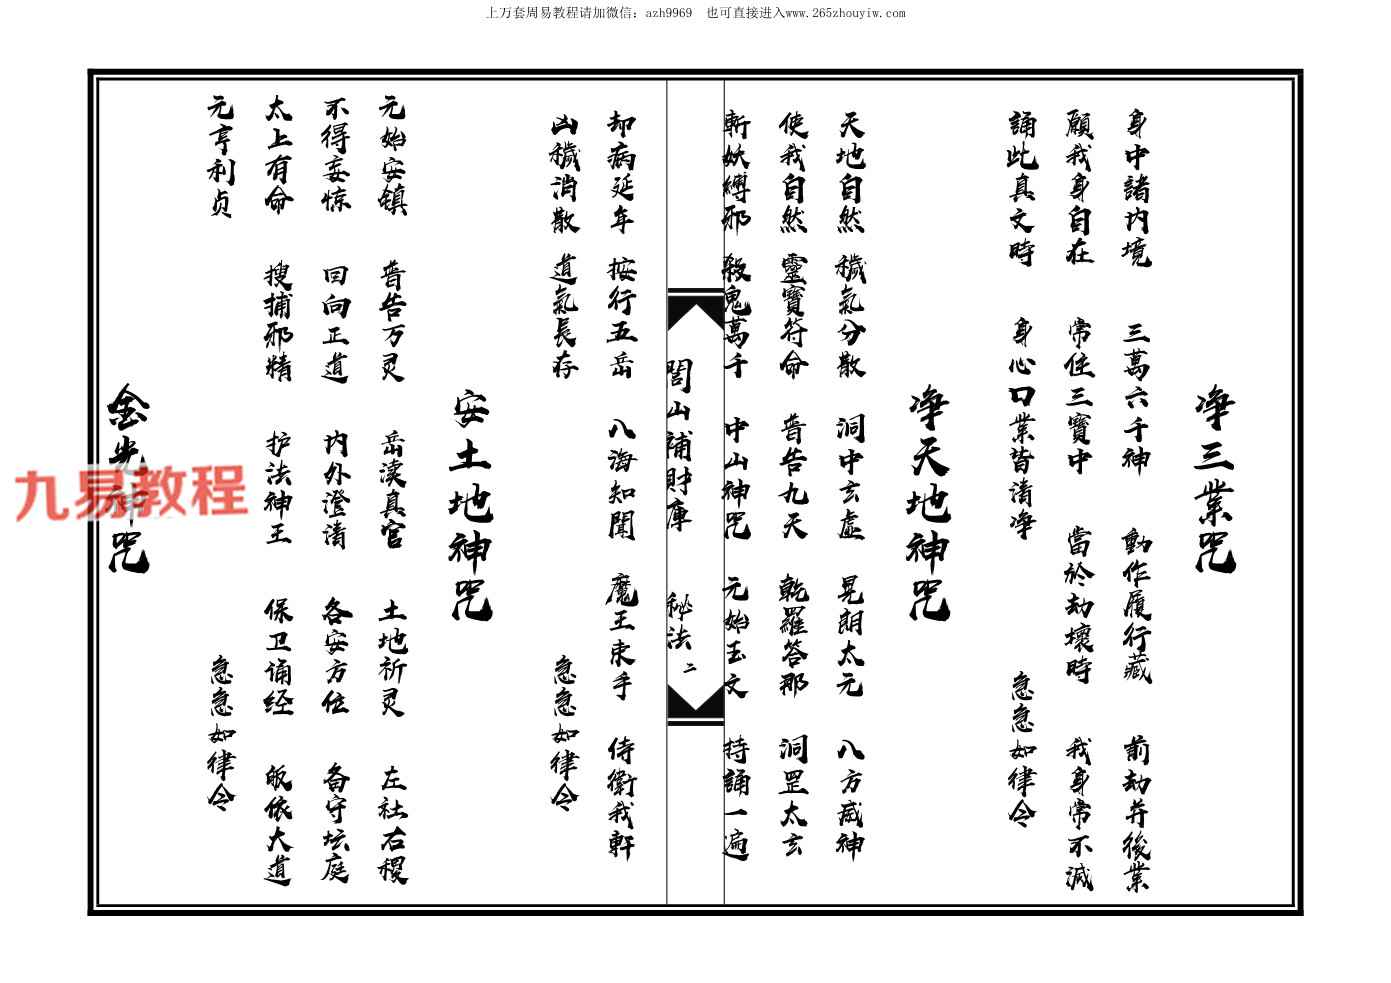 上万套周易教程请加微信：azh9969　也可直接进入www.265zhouyiw.com
净三業咒
身中諸内境　三萬六千神　動作履行藏　前劫并後業
願我身自在　常住三寶中　當於劫壞時　我身常不滅
誦此真文時　身心口業皆清净　急急如律令
净天地神咒
天地自然　穢氣分散　洞中玄虚　晃朗太元　八方威神
使我自然　靈寶符命　普告九天　乾羅答那　洞罡太玄
斬妖縛邪　殺鬼萬千　中山神咒　元始玉文　持誦一遍
閭山補財庫　秘法　二
却病延年　按行五岳　八海知聞　魔王束手　侍衛我軒
凶穢消散　道氣長存　急急如律令
安土地神咒
元始安镇　普告万灵　岳渎真官　土地祈灵　左社右稷
不得妄惊　回向正道　内外澄清　各安方位　备守坛庭
太上有命　搜捕邪精　护法神王　保卫诵经　皈依大道
元亨利贞　急急如律令
金光神咒
九易教程